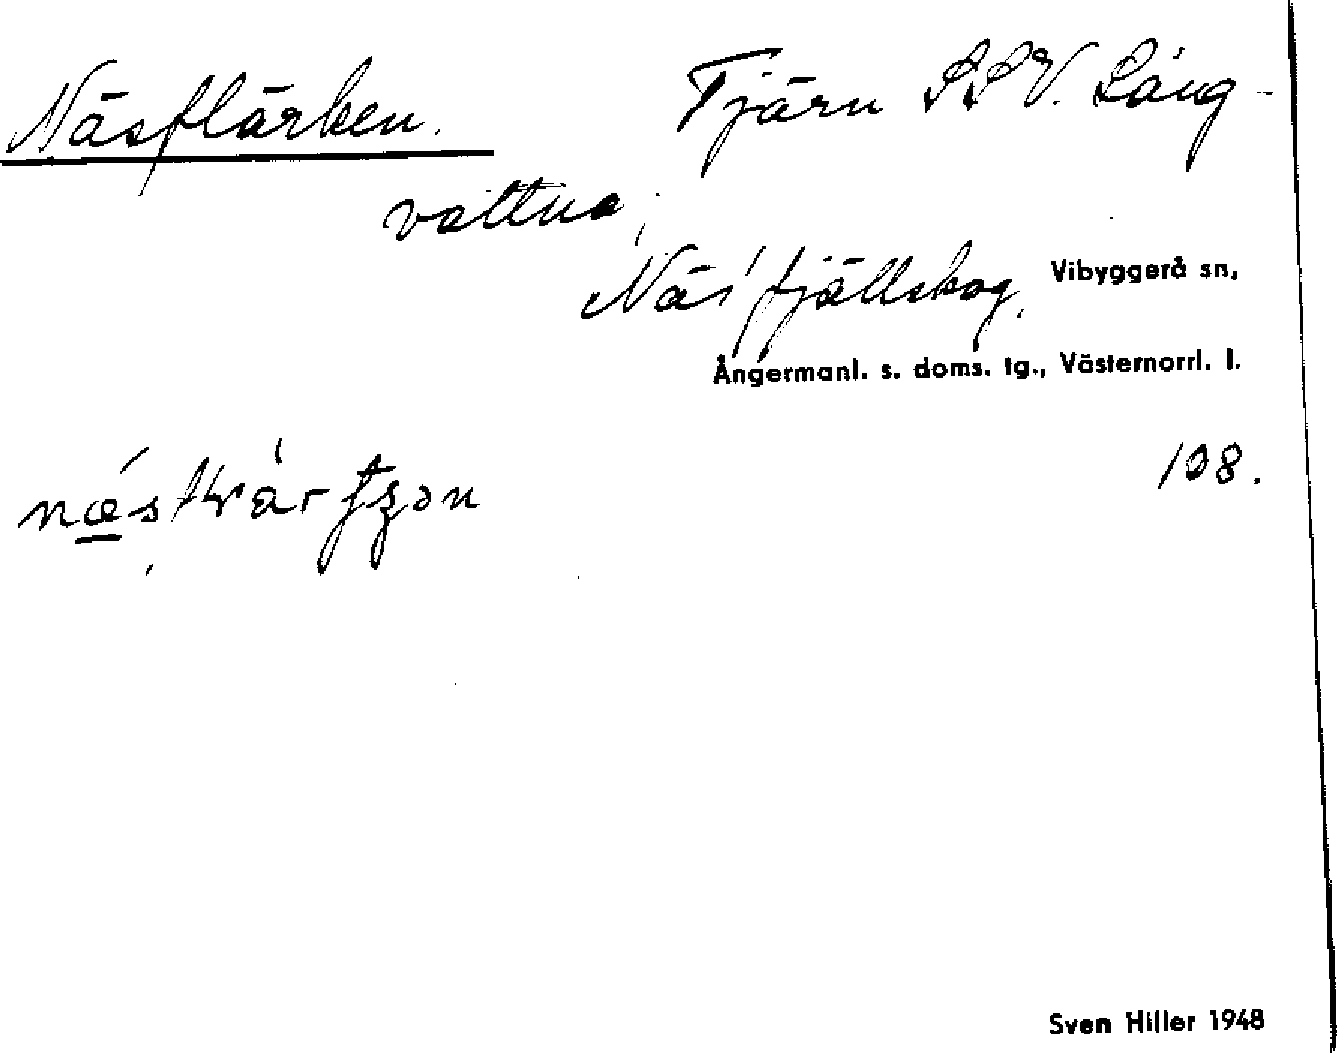 Näsflärken. Tjärn SSV. Lång-
vattna,
Näs' fjällskog, Vibyggerå sn,
Ångermanl. s. doms. tg., Västernorrl. l.
108.
Sven Hiller 1948